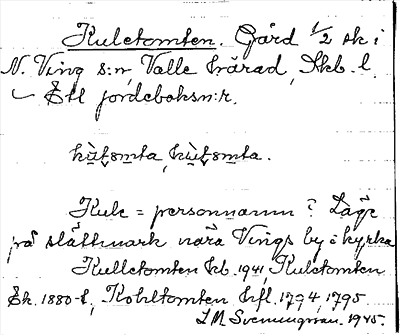 Kuletomten. Gård 1/2 sk i
N. Ving s:n, Valle härad, Skb. l.
Ett jordeboksn:r.
Kule = personnamn? Läge
på slättmark nära Vings by o kyrka
Kulletomten kb. 1941, Kuletomten
Ek. 1880-t, Kohltomten hfl. 1794, 1795
1945.